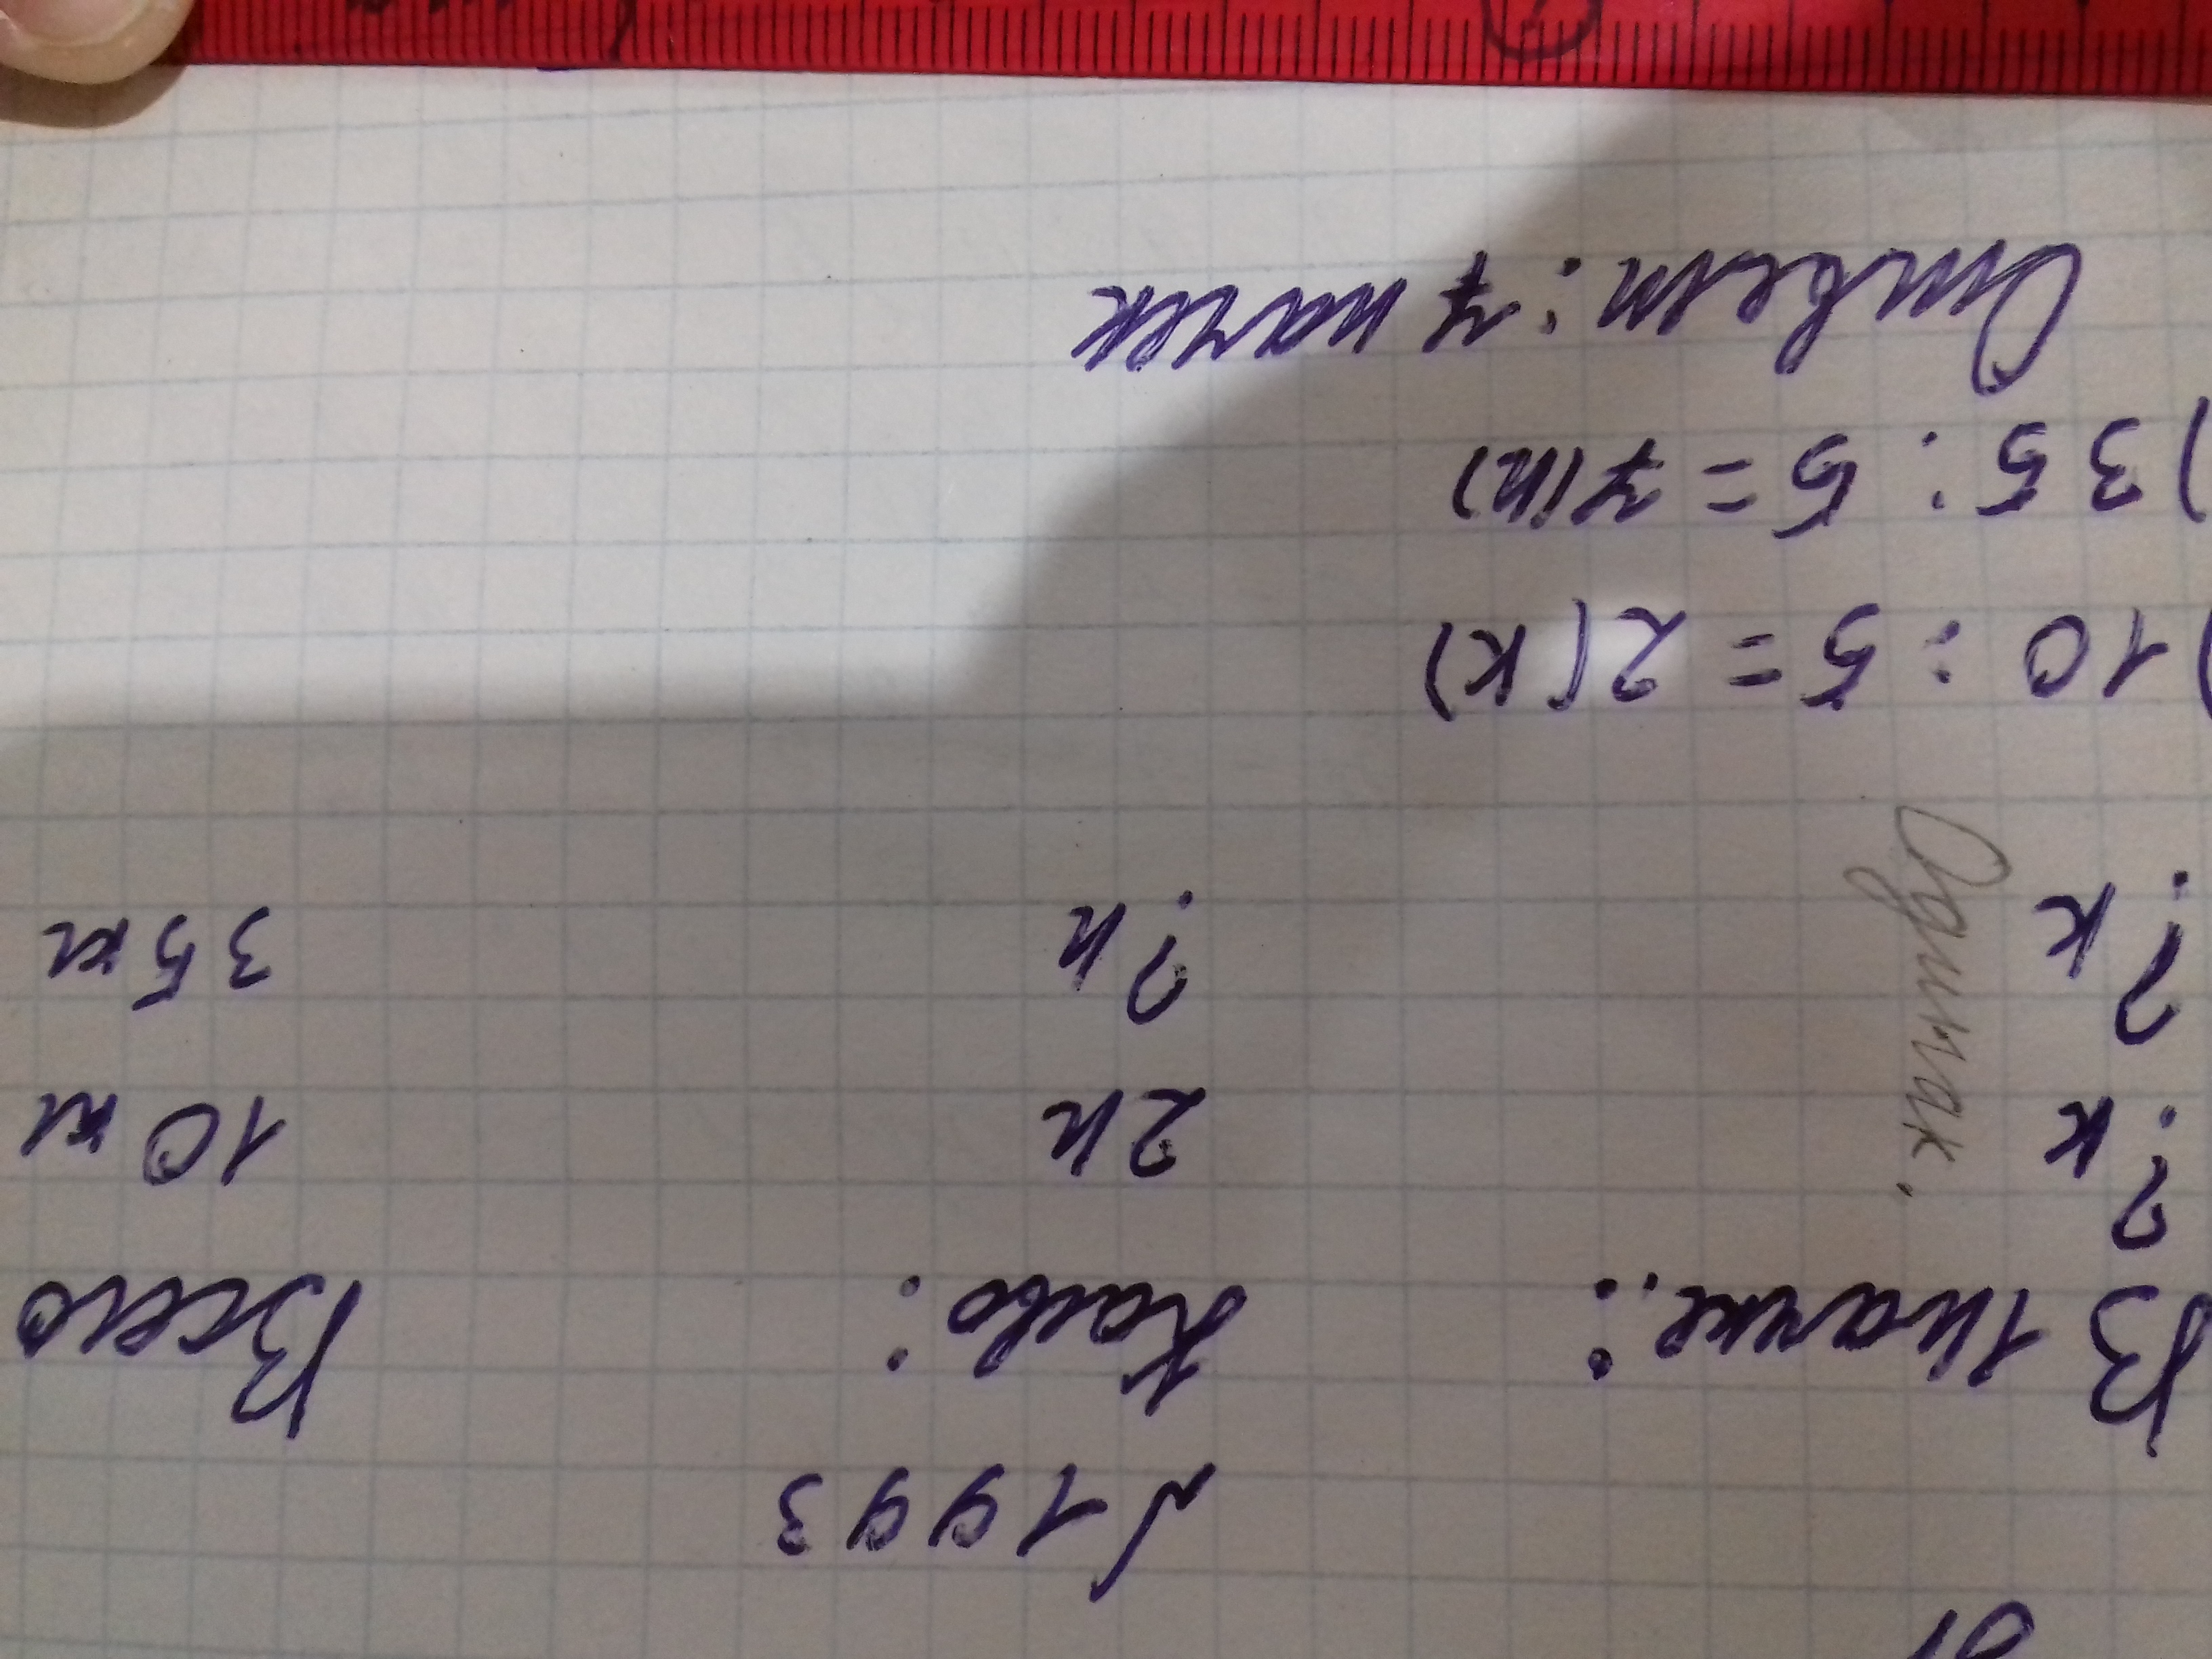 № 1993
В 1 пачке: Кол-во: Всего
? к 2 п 10 кг
? к Одинак. ? п 35 кг
) 10 : 5 = 2 (к)
) 35 : 5 = 7 (п)
Ответ: 7 пачек